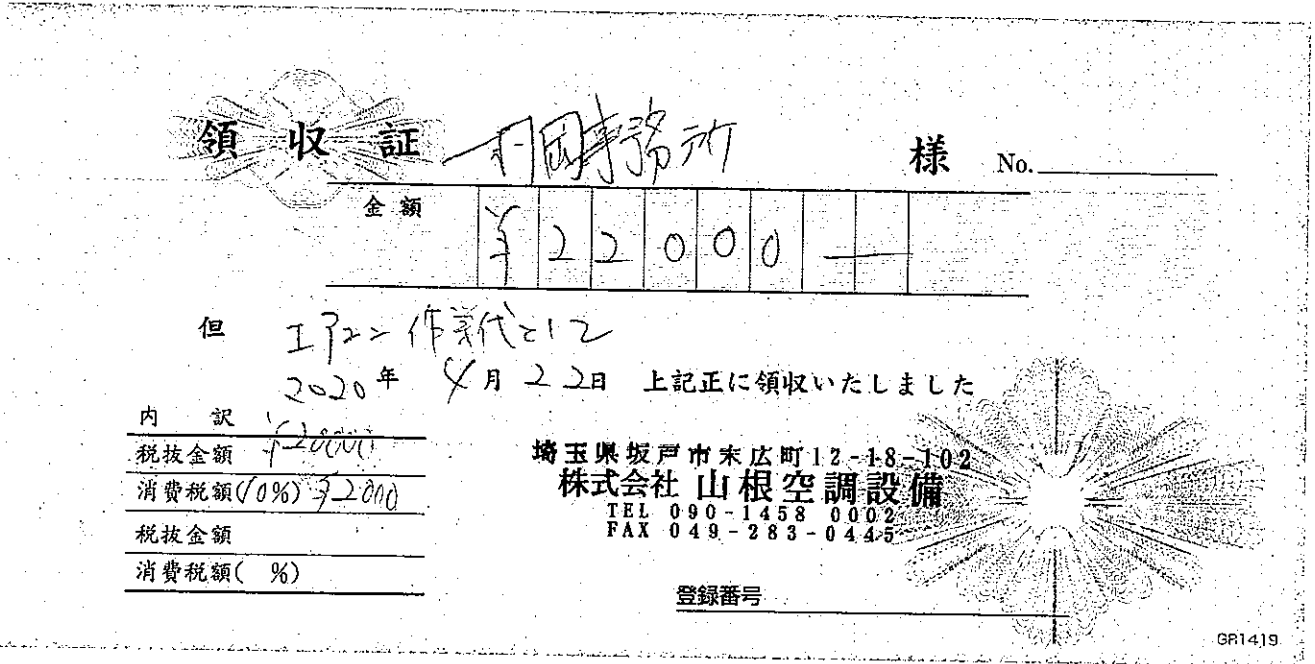 領収証 村岡事務所 様 No.
金額 ¥22000―
但 エアコン作業代として
2020年 4月22日 上記正に領収いたしました
内 訳
税抜金額 ¥20000
消費税額(10%) ¥2000
税抜金額
消費税額( %)
埼玉県坂戸市末広町12-18-102
株式会社 山根空調設備
TEL 090-1458 0002
FAX 049-283-0445
登録番号
GR1419